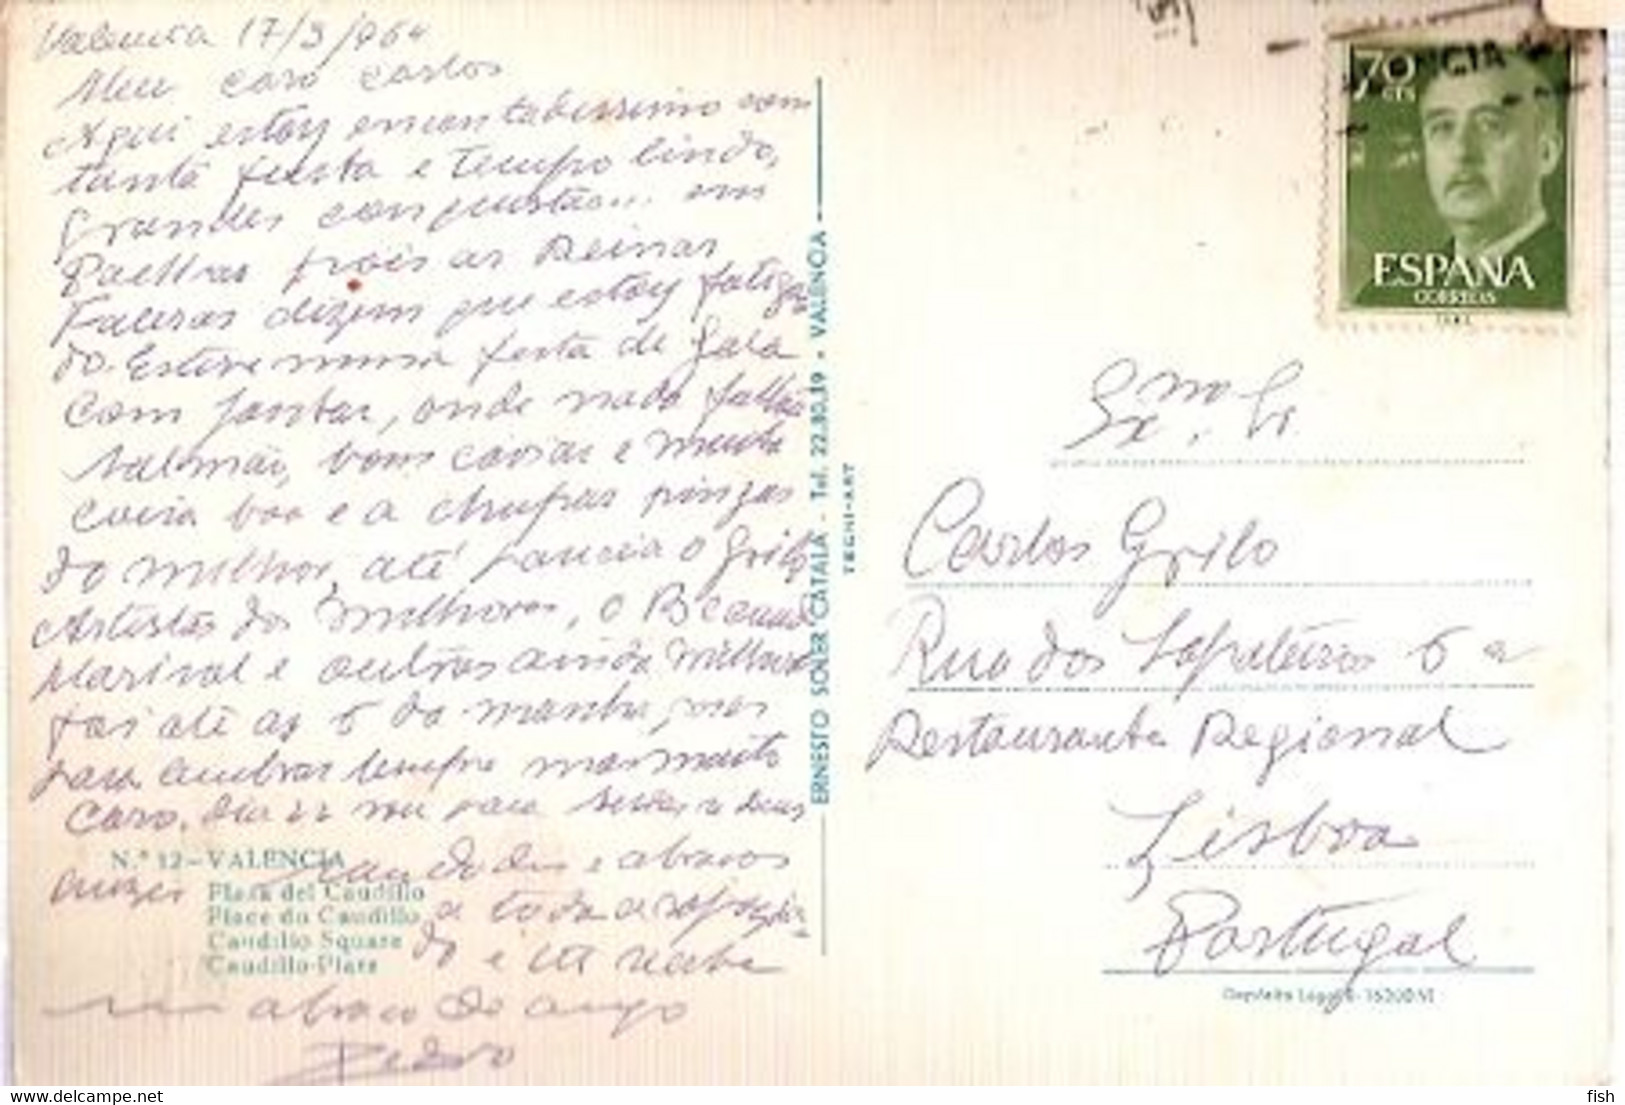 Valencia 17/3/964
Meu caro Carlos
Aqui estoy encantadissimo com
tanta festa e tempo lindo,
grandes conquistas... em
Paellas pois as Reinas
Falleras dizem que estoy fatiga
do. Estive numa festa de gala
com jantar, onde nada faltou
salmão, bom caviar e muita
coisa boa e a chupar pinzas
do melhor, até parecia o Grilo
Artistas dos melhores, o
Marisol e outros ainda milhores
foi até as 5 da manhã, mas
para lembrar sempre mas muito
caro. Dia 22 vou para
e abraços
a toda a rapazia
do e tu recebe
um abraco do amigo
Pedro
N.º 12 - VALENCIA
Plaza del Caudillo
Place du Caudillo
Caudillo Square
Caudillo-Platz
ERNESTO SOLER CATALÁ - Tel. 22.80.39 - VALENCIA
TECNI-ART
70 CTS
ESPAÑA
CORREOS
Exmo. Sr.
Carlos Grilo
Rua dos Sapateiros 6 a
Restaurante Regional
Lisboa
Portugal
Depósito Legal
fish
delcampe.net